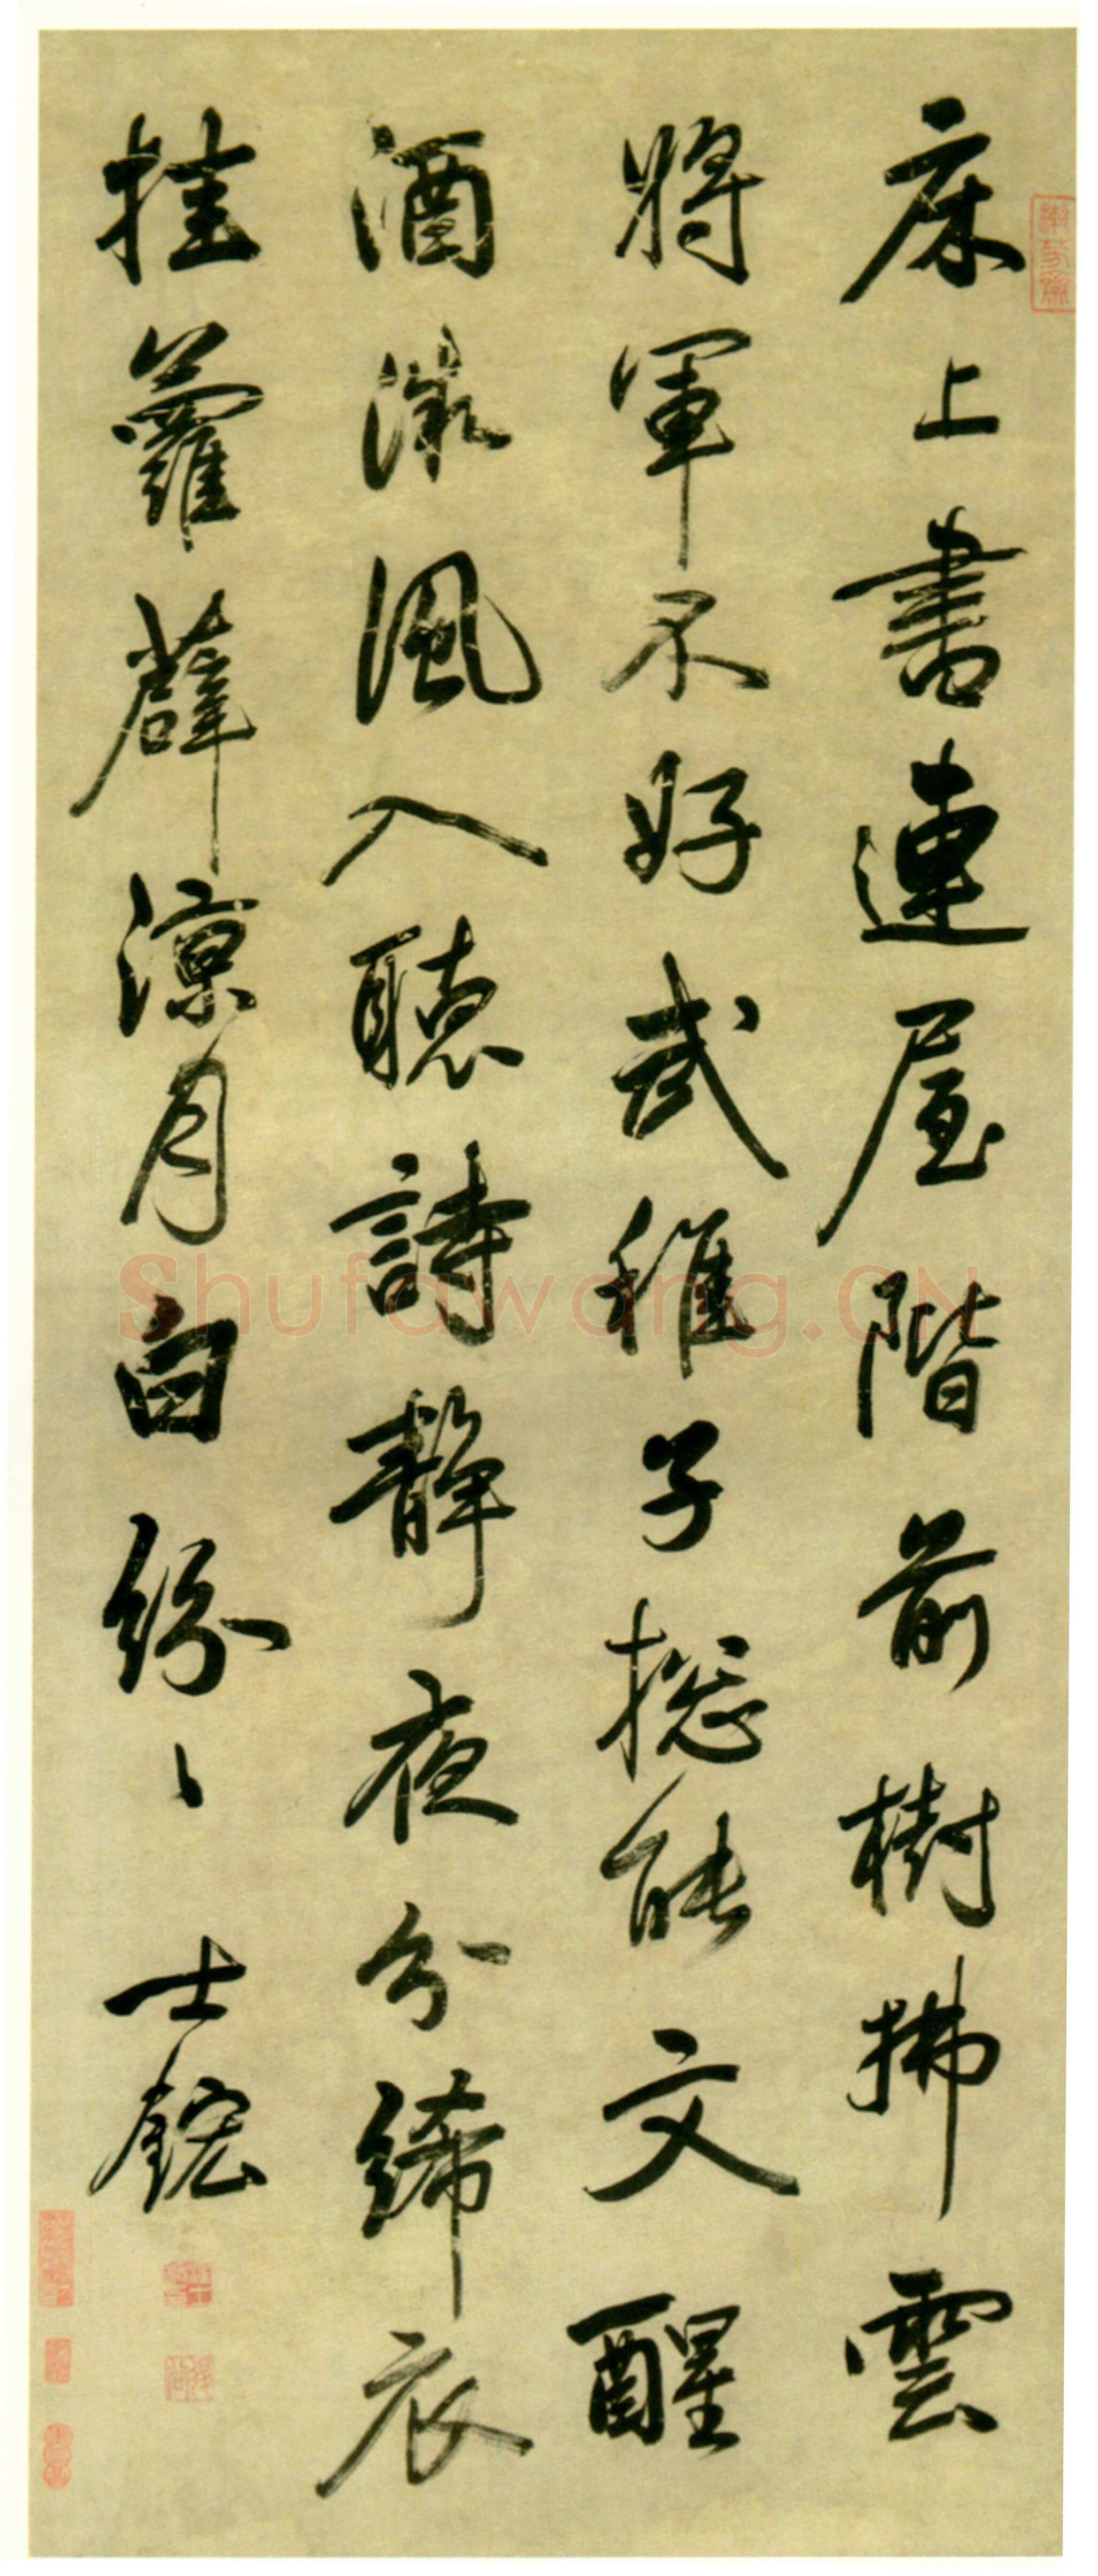 床上書連屋階前樹拂雲
將軍不好武稚子揔能文醒
酒微風入聽詩靜夜分絺衣
挂蘿薜涼月白紛〻 士鋐
Shufawang.CN